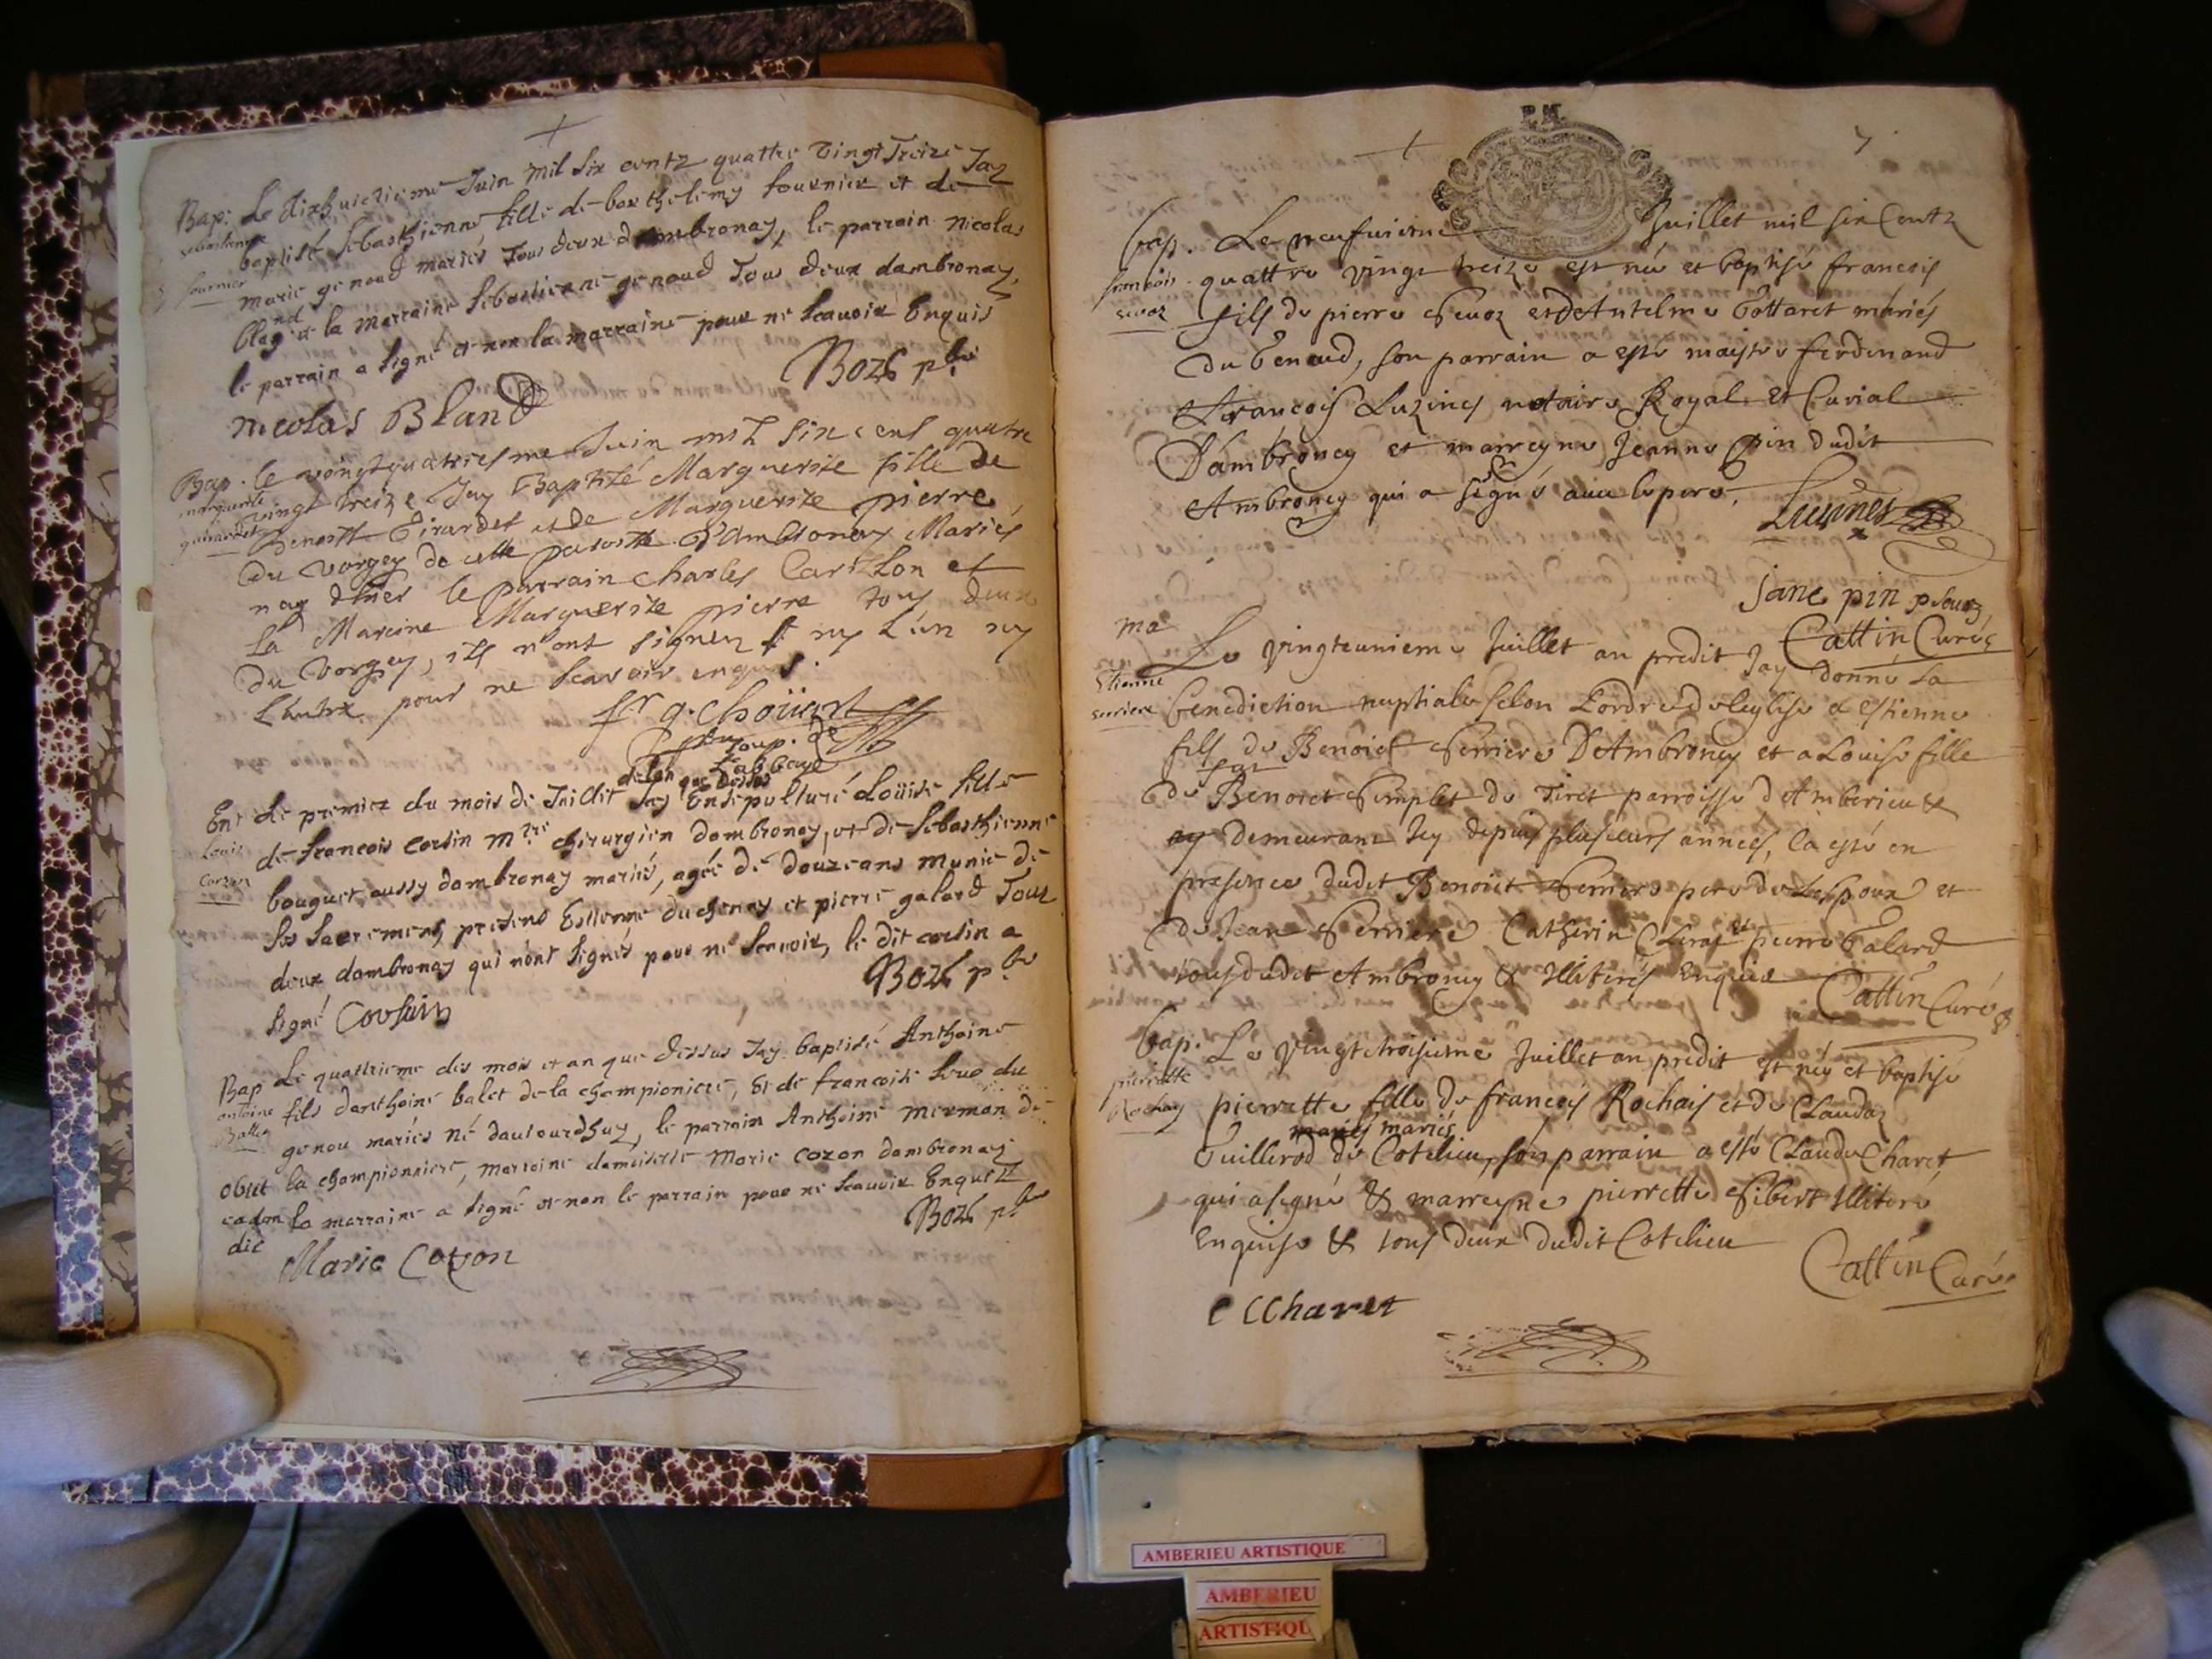 Bap: Le dixhuictieme Juin mil six centz quattre vingt treize Jay
sebastienne
fournier
baptisé sebasthienne fille de barthelemy fournier et de
marie genoud mariés tous deux dambronay, le parrain nicolas
bland et la marraine sebastienne genoud tous deux dambronay,
le parrain a signé et non la marraine pour ne scavoir Enquis
Bozé pbre
nicolas Bland
Bap. le vingt quatriesme Juin mil six cens quatre
marguerite
girardet
vingt treize Jay Baptizé Marguerite fille de
Benoitt Girardet et de Marguerite pierre
du vorgey de cette paroisse d'Ambronay Mariés
nay d'hier le parrain charles Carillon et
la Mareine Marguerite pierre tous deux
du vorgey, ils n'ont signez ny l'un ny
l'autre pour ne scavoir enquis.
fr g. choüert
soup. de
l'abbaye
de lan que dessus
Ent Le premier du mois de Juillit Jay Ensepulturé Loüise fille
Louise
Corsin
de francois corsin mtre chirurgien dambronay, et de sebasthienne
bouguet aussy dambronay mariés, agée de douze ans munie de
ses sacremens, present Estienne duchenay et pierre galard tous
deux dambronay qui n'ont signés pour ne scavoir, le dit corsin a
signé Corsain
Bozé pbre
Bap Le quattrieme des mois et an que dessus Jay baptisé Anthoine
antoine
Ballet
fils danthoine balet de la championiere, Et de francoise
genou mariés né daujourdhuy, le parrain Anthoine mermon de
obiit la championniere, marraine damoiselle marie cozon dambronay
eadem la marraine a signé et non le parrain pour ne scavoir Enquiz
die
Bozé pbre
Marie Cozon
7
bap. Le neufvieme Juillet mil six Centz
francois
sevoz
quattre vingt treize est née et baptisé francois
fils de pierre sevoz et d'Antelme Gottaret mariés
du Genoud, son parrain a esté maistre ferdinand
francois Luzines notaire Royal et Curial
D'ambronay et marreyne Jeanne pin dudit
Ambronay qui a signé avec le pere.
Luzines
Jane pin
Cattin Curé
ma
Le vingteunieme Juillet an predit Jay donné la
Etienne
serriere
benediction nuptiale selon l'ordre de leglise a Estienne
fils de Benoict serriere d'Ambronay et a Louise fille
de feu Benoict simplet de Tiret parroisse d'Amberieu &
demeurant Icy depuis plusieurs années, ca esté en
presence dudit Benoict serriere pere de Lespoux et
de Jean serriere Catherin Clerat et pierre Galard
tous dudit Ambronay & Illiterés Enquis
Cattin Curé
bap. Le vingt troisieme Juillet an predit est née et baptisé
pierrette
Rochay
pierrette fille de francois Rochais et de Claudaz
mariés mariés
Guillerod de Cotelieu, son parrain a esté Claude Charet
qui a signé & marreyne pierrette sibert Illiteré
Enquise & tous deux dudit Cotelieu
Cattin Curé
C CCharet
AMBERIEU ARTISTIQUE
AMBERIEU
ARTISTIQU